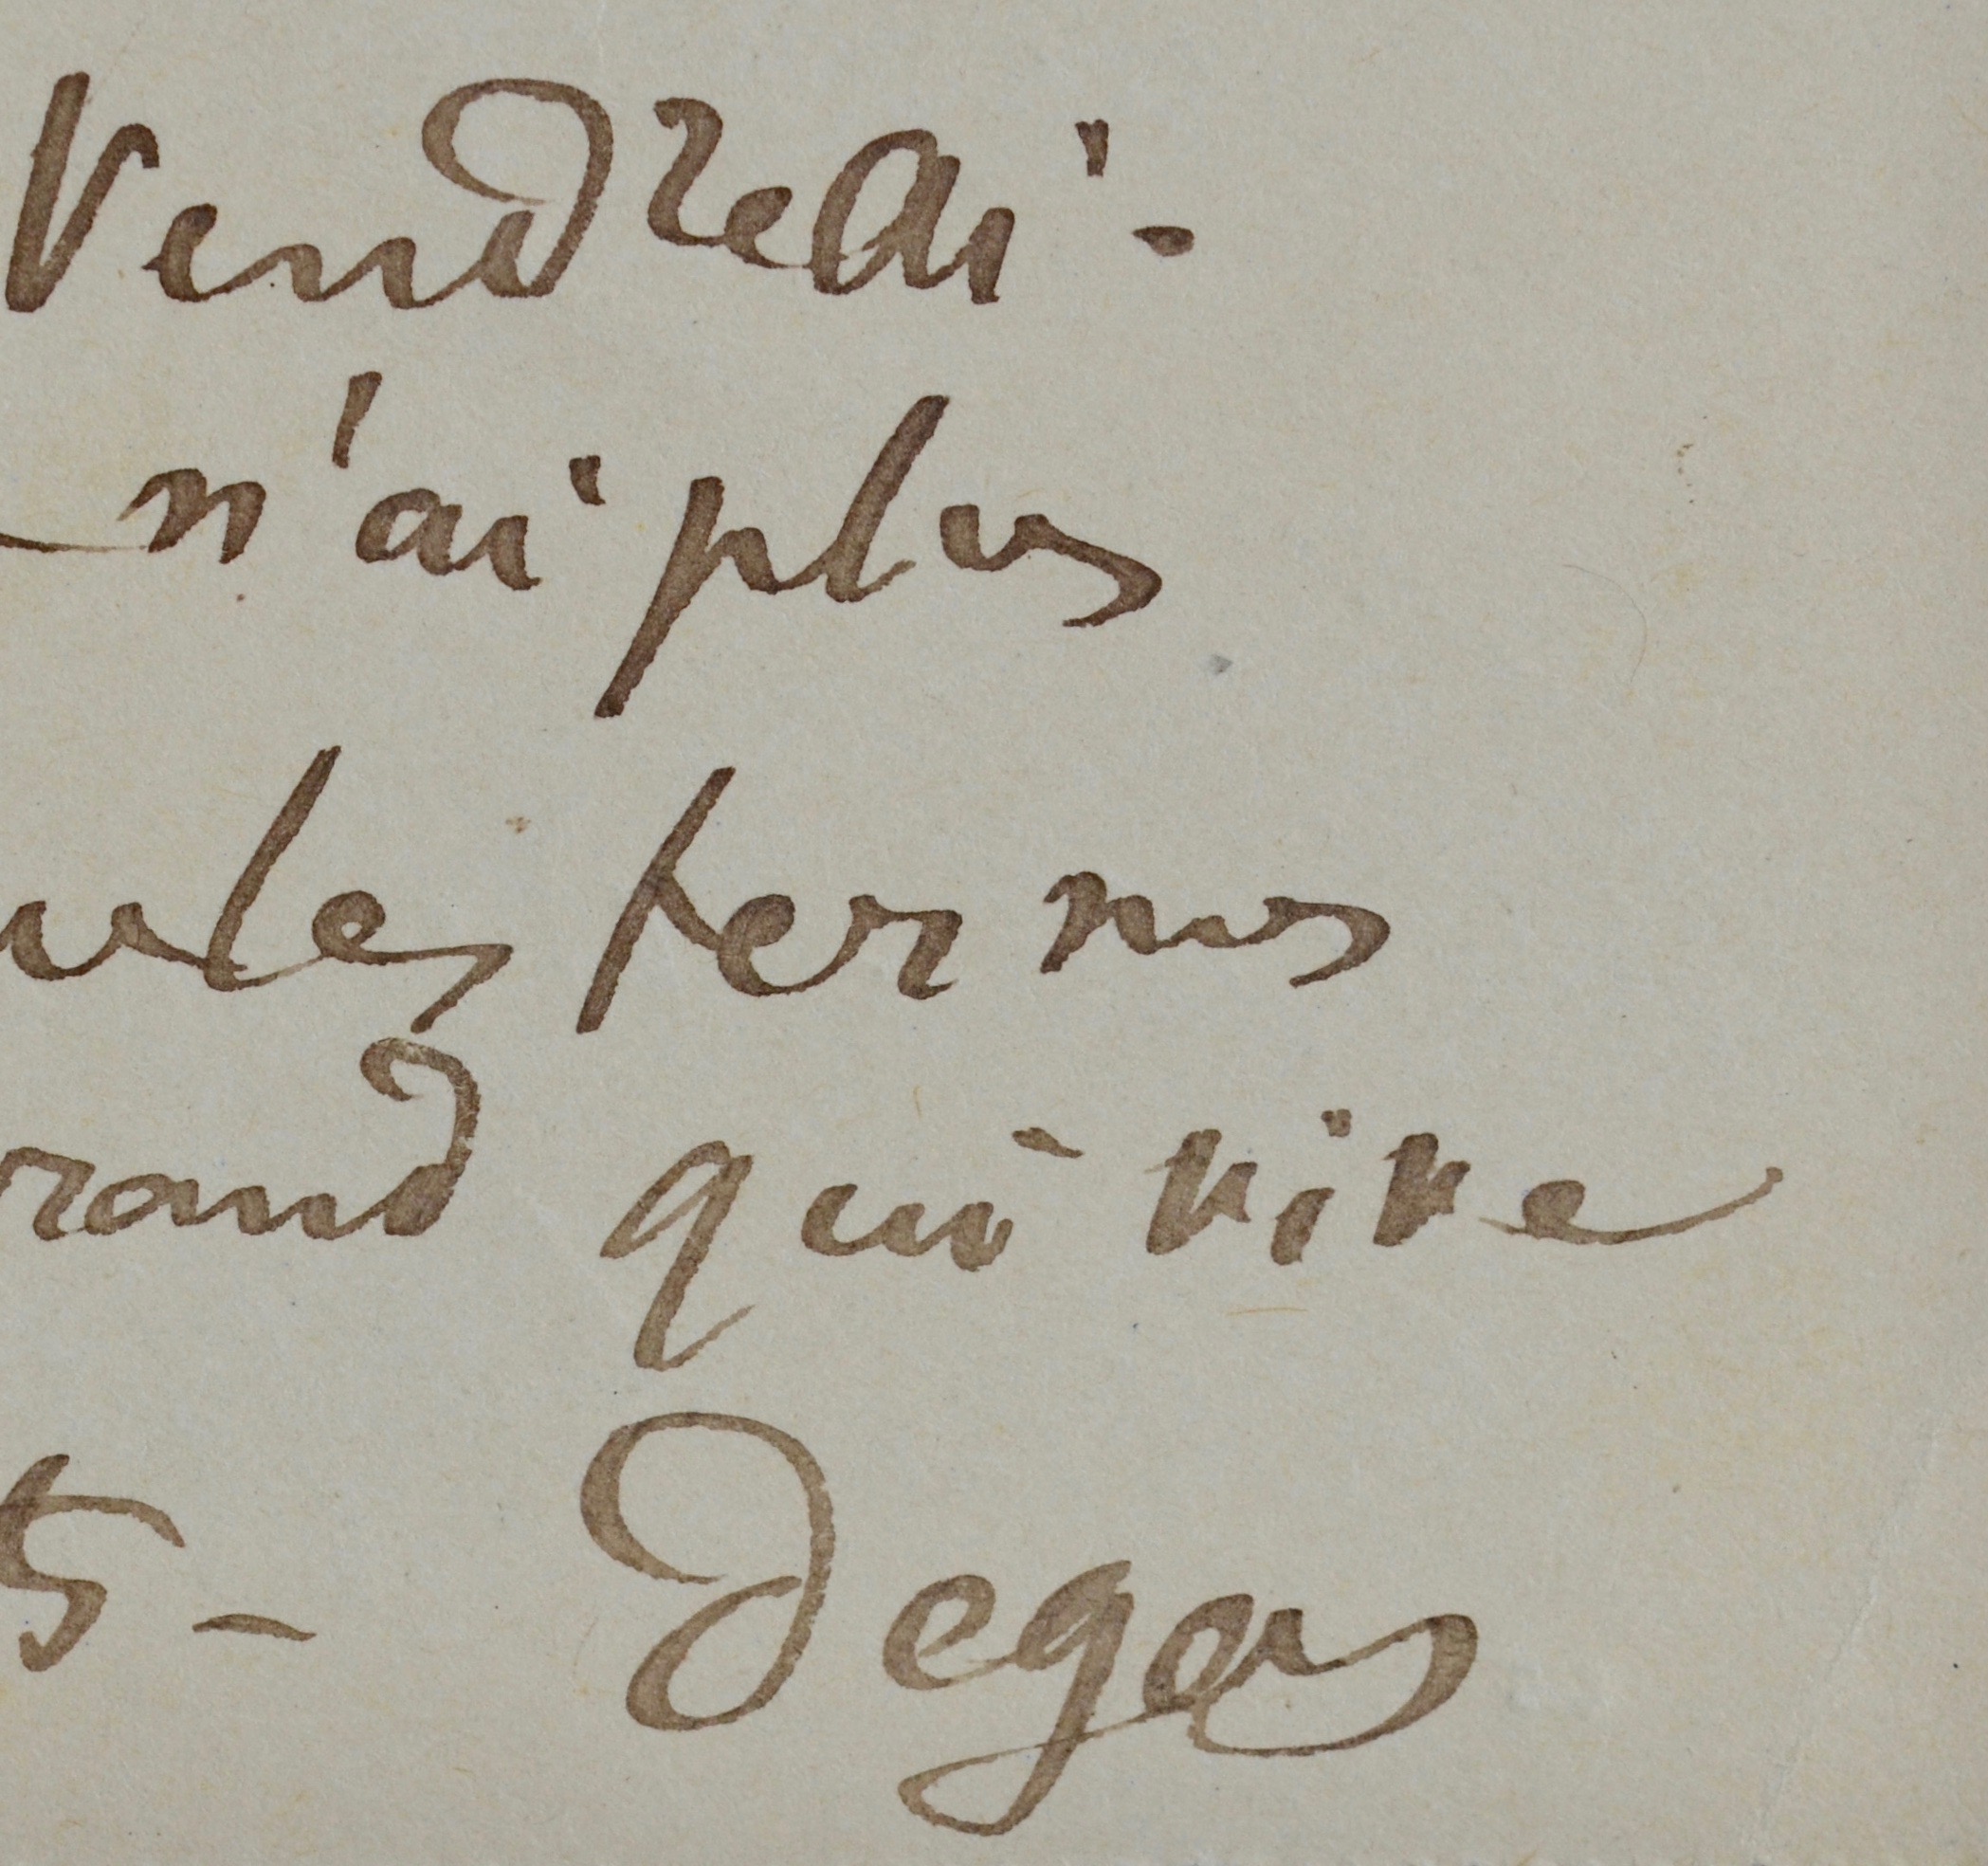 Vendredi -
n'ai plus
ules ternos
rand qui vive
5 - Degas